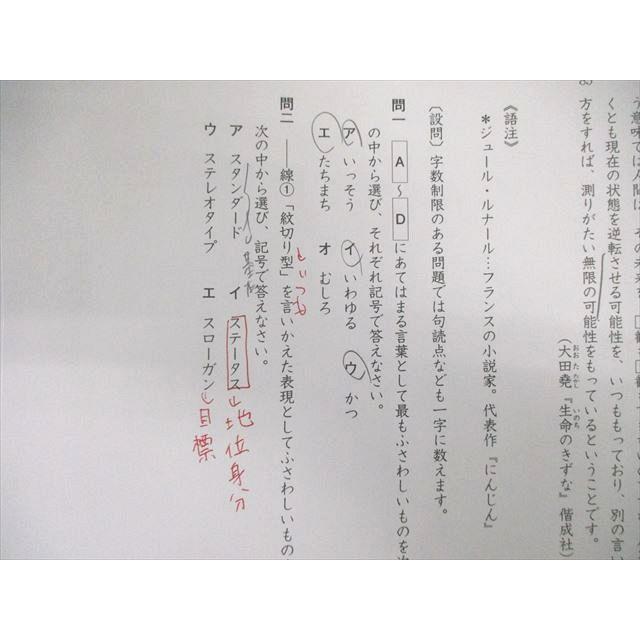 う意味では人間は、その未来を
くとも現在の状態を逆転させる可能性を、いつももっており、別の言い
方をすれば、測りがたい無限の可能性をもっているということです。
(大田堯『生命のきずな』偕成社)
おお た たかし
いのち
《語注》
*ジュール・ルナール…フランスの小説家。代表作『にんじん』
〔設問〕字数制限のある問題では句読点なども一字に数えます。
問一 A〜Dにあてはまる言葉として最もふさわしいものを次
の中から選び、それぞれ記号で答えなさい。
ア いっそう イ いわゆる ウ かつ
エ たちまち オ むしろ
問二 ――線①「紋切り型」を言いかえた表現としてふさわしいもの
次の中から選び、記号で答えなさい。
ア スタンダード イ ステータス
地位身分
ウ ステレオタイプ エ スローガン
目標